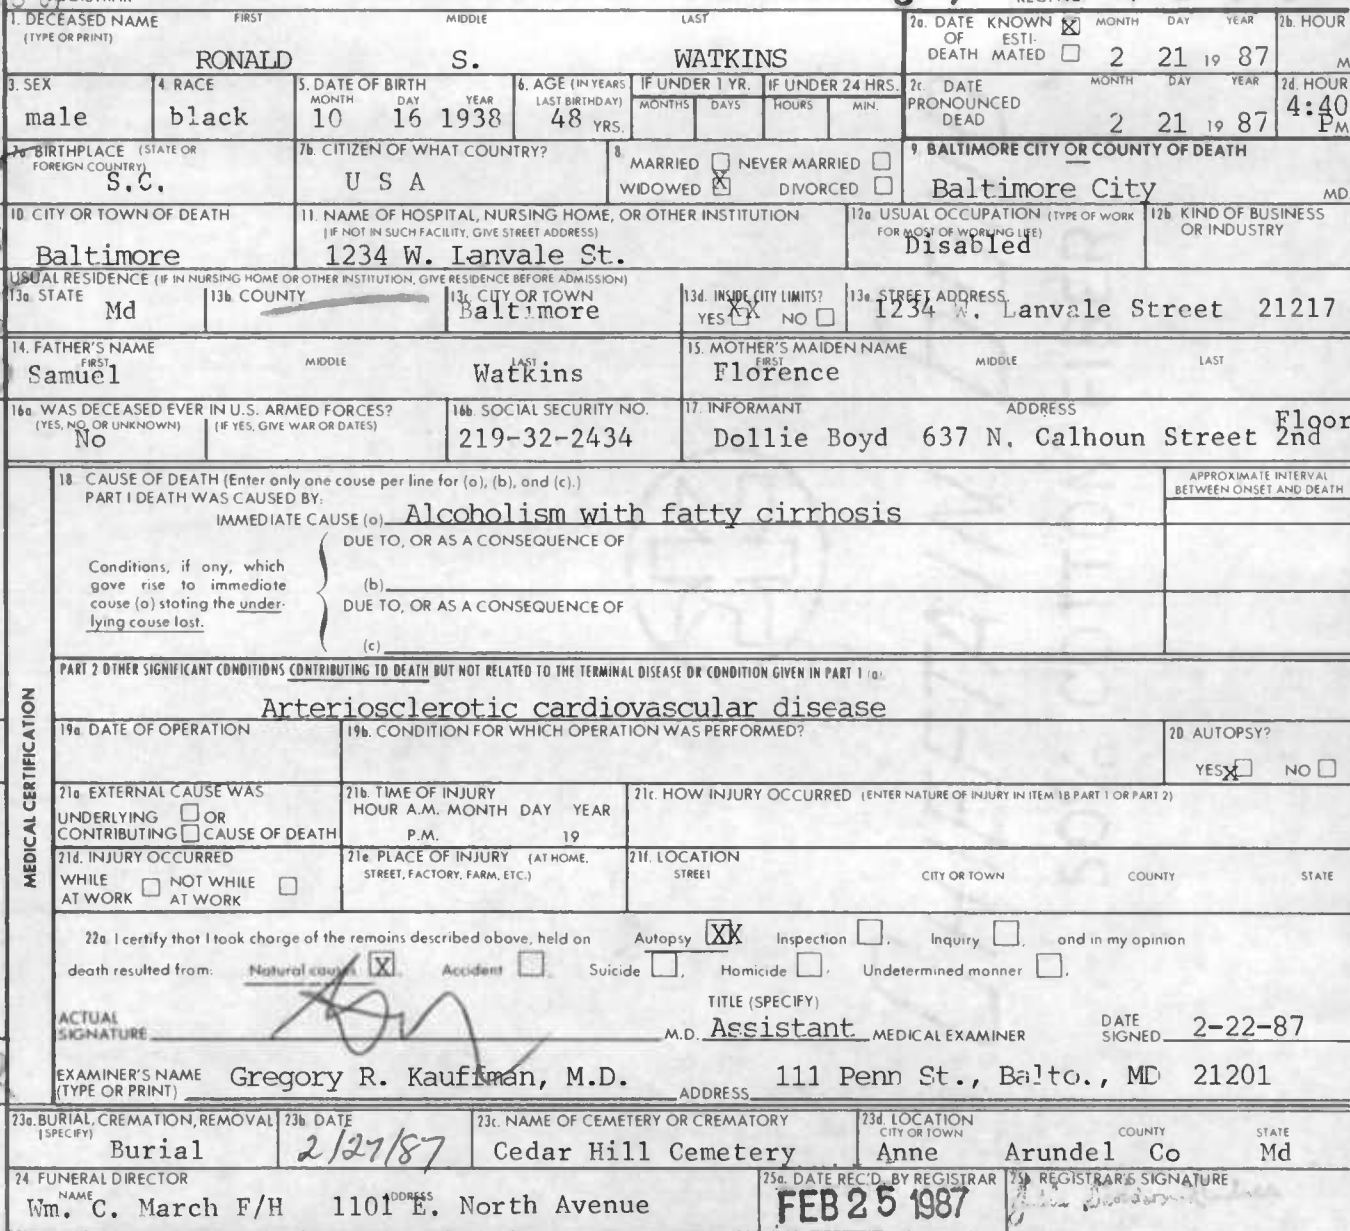 1. DECEASED NAME FIRST MIDDLE LAST
(TYPE OR PRINT)
RONALD S. WATKINS
2a. DATE KNOWN X MONTH DAY YEAR
OF ESTI-
DEATH MATED 2 21 19 87
2b. HOUR
M
3. SEX
male
4 RACE
black
5. DATE OF BIRTH
MONTH DAY YEAR
10 16 1938
6. AGE (IN YEARS
LAST BIRTHDAY)
48 YRS.
IF UNDER 1 YR.
MONTHS DAYS
IF UNDER 24 HRS.
HOURS MIN.
2c. DATE MONTH DAY YEAR
PRONOUNCED
DEAD 2 21 19 87
2d. HOUR
4:40
PM
7a BIRTHPLACE (STATE OR
FOREIGN COUNTRY)
S.C.
7b. CITIZEN OF WHAT COUNTRY?
U S A
8
MARRIED NEVER MARRIED
WIDOWED X DIVORCED
9. BALTIMORE CITY OR COUNTY OF DEATH
Baltimore City MD
10. CITY OR TOWN OF DEATH
Baltimore
11. NAME OF HOSPITAL, NURSING HOME, OR OTHER INSTITUTION
(IF NOT IN SUCH FACILITY, GIVE STREET ADDRESS)
1234 W. Lanvale St.
12a USUAL OCCUPATION (TYPE OF WORK
FOR MOST OF WORKING LIFE)
Disabled
12b. KIND OF BUSINESS
OR INDUSTRY
USUAL RESIDENCE (IF IN NURSING HOME OR OTHER INSTITUTION, GIVE RESIDENCE BEFORE ADMISSION)
13a. STATE
Md
13b. COUNTY
13c. CITY OR TOWN
Baltimore
13d. INSIDE CITY LIMITS?
YES XX NO
13e. STREET ADDRESS
1234 W. Lanvale Street 21217
14. FATHER'S NAME
FIRST MIDDLE LAST
Samuel Watkins
15. MOTHER'S MAIDEN NAME
FIRST MIDDLE LAST
Florence
16a WAS DECEASED EVER IN U.S. ARMED FORCES?
(YES, NO, OR UNKNOWN) (IF YES, GIVE WAR OR DATES)
No
16b. SOCIAL SECURITY NO.
219-32-2434
17. INFORMANT ADDRESS
Floor
Dollie Boyd 637 N. Calhoun Street 2nd
18 CAUSE OF DEATH (Enter only one cause per line for (a), (b), and (c).)
PART I DEATH WAS CAUSED BY:
IMMEDIATE CAUSE (a) Alcoholism with fatty cirrhosis
APPROXIMATE INTERVAL
BETWEEN ONSET AND DEATH
DUE TO, OR AS A CONSEQUENCE OF
Conditions, if any, which
gave rise to immediate
cause (a) stating the under-
lying cause last.
(b)
DUE TO, OR AS A CONSEQUENCE OF
(c)
PART 2 OTHER SIGNIFICANT CONDITIONS CONTRIBUTING TO DEATH BUT NOT RELATED TO THE TERMINAL DISEASE OR CONDITION GIVEN IN PART 1 (a).
Arteriosclerotic cardiovascular disease
MEDICAL CERTIFICATION
19a. DATE OF OPERATION
19b. CONDITION FOR WHICH OPERATION WAS PERFORMED?
20 AUTOPSY?
YES X NO
21a EXTERNAL CAUSE WAS
UNDERLYING OR
CONTRIBUTING CAUSE OF DEATH
21b. TIME OF INJURY
HOUR A.M. MONTH DAY YEAR
P.M. 19
21c. HOW INJURY OCCURRED (ENTER NATURE OF INJURY IN ITEM 18 PART 1 OR PART 2)
21d. INJURY OCCURRED
WHILE NOT WHILE
AT WORK AT WORK
21e PLACE OF INJURY (AT HOME,
STREET, FACTORY, FARM, ETC.)
21f. LOCATION
STREET CITY OR TOWN COUNTY STATE
22a I certify that I took charge of the remains described above, held on Autopsy XX Inspection , Inquiry , and in my opinion
death resulted from: Natural causes X , Accident , Suicide , Homicide , Undetermined manner .
ACTUAL
SIGNATURE
TITLE (SPECIFY)
M.D. Assistant MEDICAL EXAMINER
DATE
SIGNED 2-22-87
EXAMINER'S NAME
(TYPE OR PRINT) Gregory R. Kauffman, M.D. ADDRESS 111 Penn St., Balto., MD 21201
23a. BURIAL, CREMATION, REMOVAL
(SPECIFY)
Burial
23b. DATE
2/27/87
23c. NAME OF CEMETERY OR CREMATORY
Cedar Hill Cemetery
23d. LOCATION
CITY OR TOWN COUNTY STATE
Anne Arundel Co Md
24. FUNERAL DIRECTOR
NAME ADDRESS
Wm. C. March F/H 1101 E. North Avenue
25a. DATE REC'D. BY REGISTRAR
FEB 25 1987
25b. REGISTRAR'S SIGNATURE